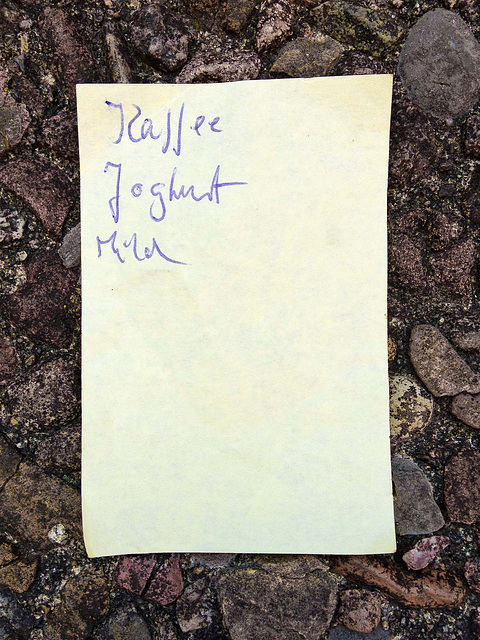 Kaffee
Joghurt
Milch